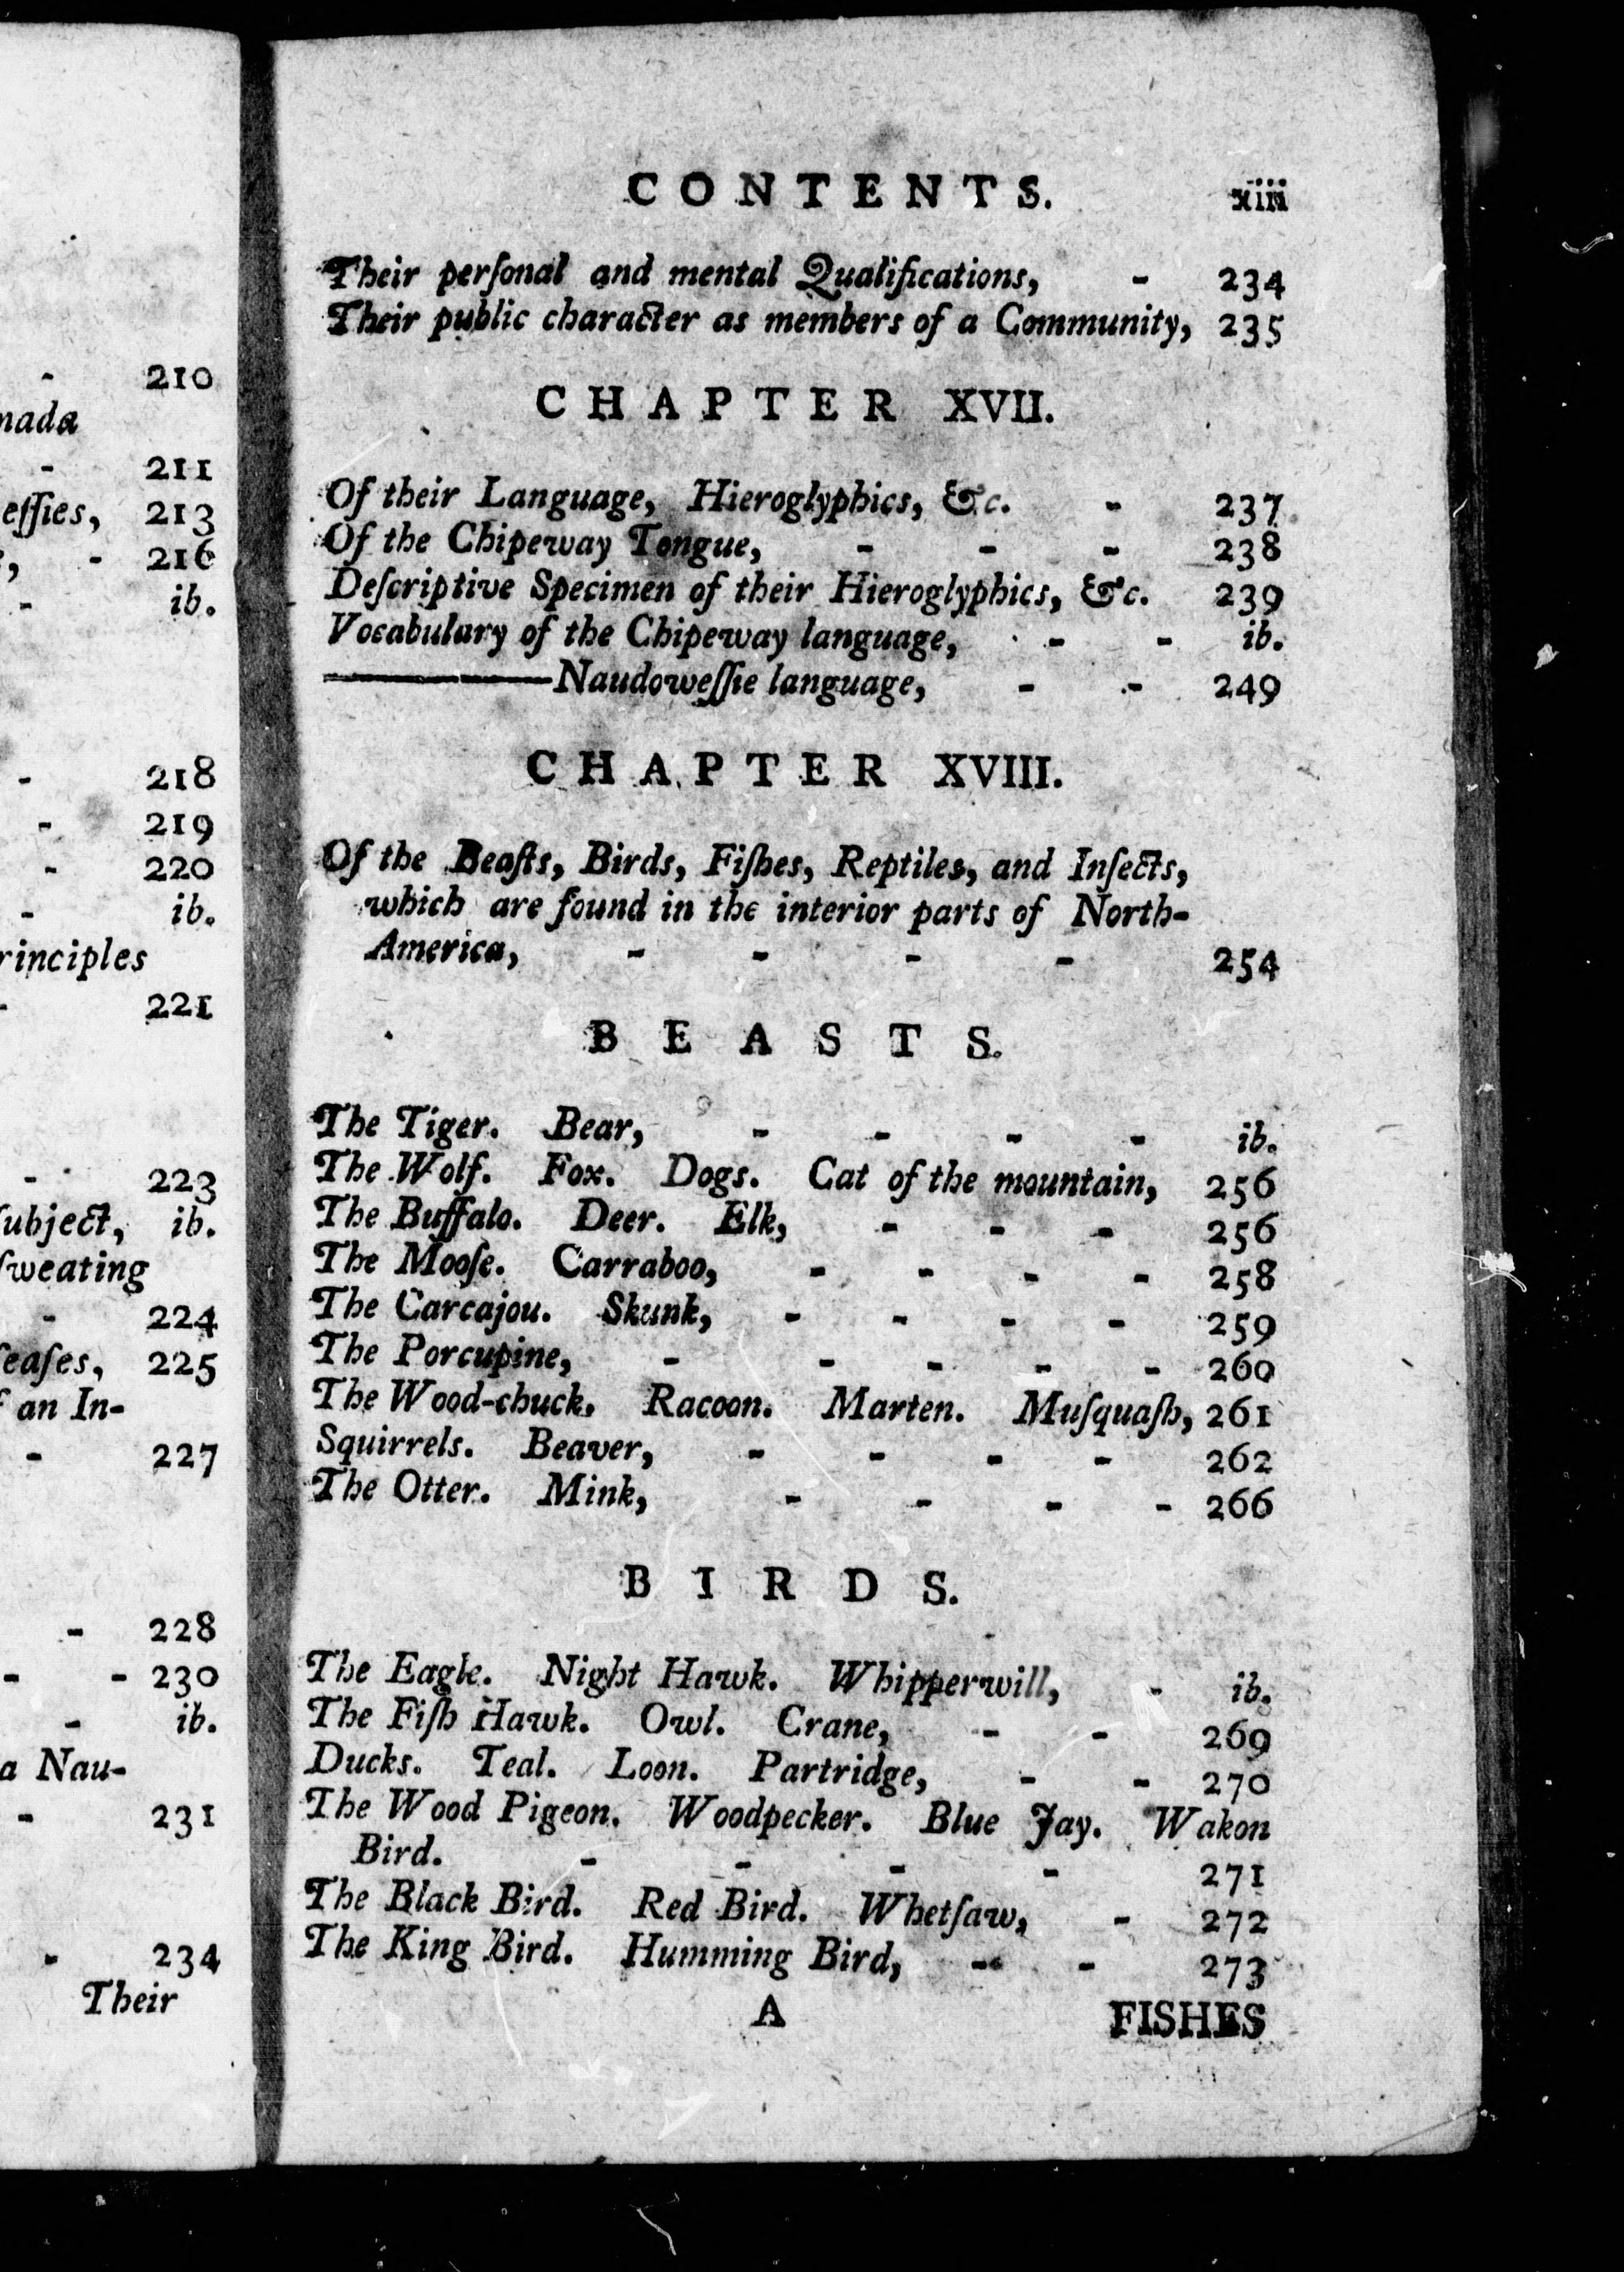 210
nada
- 211
eſſies, 213
, - 216
- ib.
- 218
- 219
- 220
- ib.
rinciples
- 221
- 223
ſubject, ib.
ſweating
- 224
ſeaſes, 225
an In-
- 227
- 228
- - 230
- ib.
a Nau-
- 231
- 234
Their
CONTENTS. xiii
Their perſonal and mental Qualifications, - 234
Their public character as members of a Community, 235
CHAPTER XVII.
Of their Language, Hieroglyphics, &c. - 237
Of the Chipeway Tongue, - - - 238
Deſcriptive Specimen of their Hieroglyphics, &c. 239
Vocabulary of the Chipeway language, - - ib.
———Naudoweſſie language, - - 249
CHAPTER XVIII.
Of the Beaſts, Birds, Fiſhes, Reptiles, and Inſects,
which are found in the interior parts of North-
America, - - - - 254
BEASTS.
The Tiger. Bear, - - - - ib.
The Wolf. Fox. Dogs. Cat of the mountain, 256
The Buffalo. Deer. Elk, - - - 256
The Mooſe. Carraboo, - - - - 258
The Carcajou. Skunk, - - - - 259
The Porcupine, - - - - - 260
The Wood-chuck. Racoon. Marten. Muſquaſh, 261
Squirrels. Beaver, - - - - 262
The Otter. Mink, - - - - 266
BIRDS.
The Eagle. Night Hawk. Whipperwill, - ib.
The Fiſh Hawk. Owl. Crane, - - 269
Ducks. Teal. Loon. Partridge, - - 270
The Wood Pigeon. Woodpecker. Blue Jay. Wakon
Bird. - - - - 271
The Black Bird. Red Bird. Whetſaw, - 272
The King Bird. Humming Bird, - - 273
A FISHES